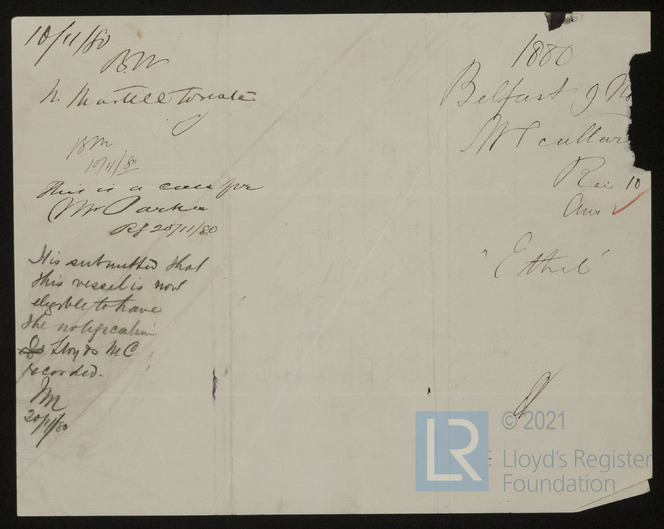 10/11/80
BW
Mr Martell to note
BM
10/11/80
This is a case for
Mr Parker
RJ 20/11/80
It is submitted that
this vessel is now
eligible to have
the notification
Lloyds MC
recorded.
20/11/80
1880
Belfast 9 No
Rec 10
Ans
"Ethel"
© 2021
LR
Lloyd's Register
Foundation